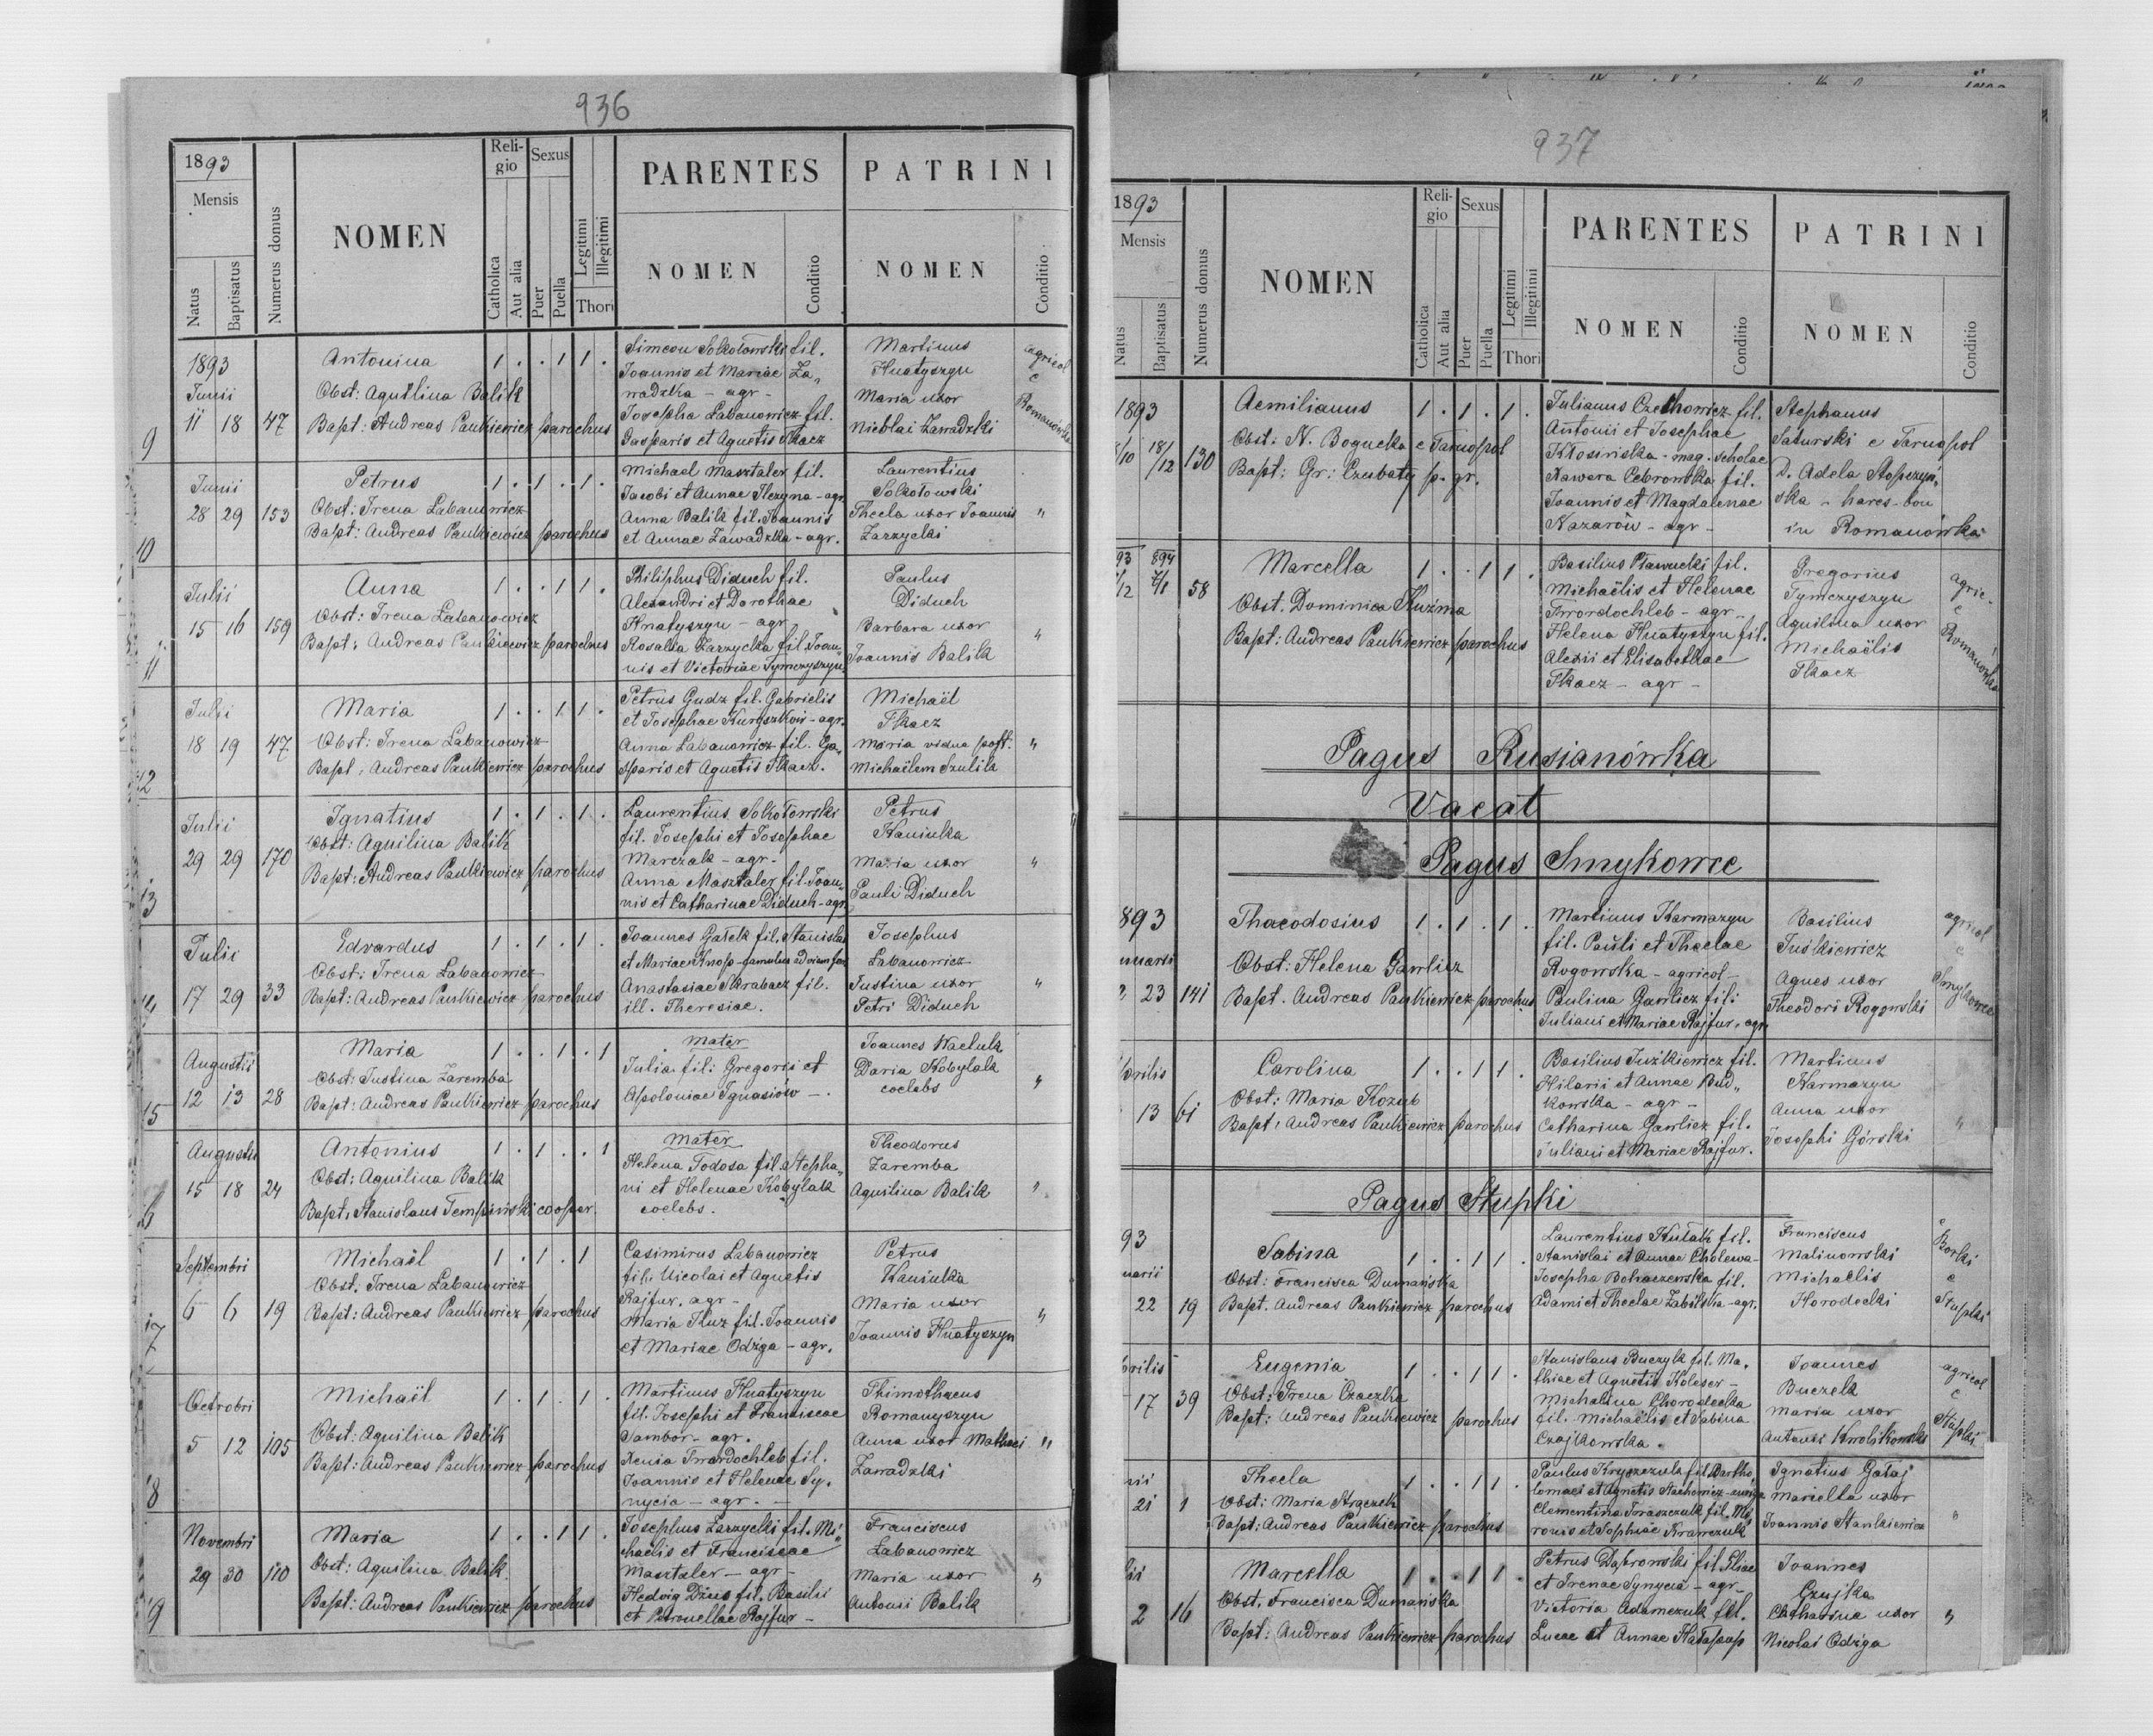 936
1893
Mensis
Natus
Baptisatus
Numerus domus
NOMEN
Reli-
gio
Catholica
Aut alia
Sexus
Puer
Puella
Legitimi
Illegitimi
Thori
PARENTES
NOMEN
Conditio
PATRINI
NOMEN
Conditio
9
1893
Junii
11 18 47
Antonina
Obst: Aquilina Balik
Bapt: Andreas Paukiewicz parochus
1 . . 1 1 .
Simeon Sokołowski fil.
Joannis et Mariae Za„
wadzka - agr -
Josepha Łabanowicz fil.
Gasparis et Agnetis Tkacz
Martinus
Hnatyszyn
Maria uxor
Nicolai Zawadzki
agricol
e
Romanówka
10
Junii
28 29 153
Petrus
Obst: Irena Łabanowicz
Bapt: Andreas Paukiewicz parochus
1 . 1 . 1 .
Michael Masztaler fil.
Jacobi et Annae - agr.
Anna Balik fil. Joannis
et Annae Zawadzka - agr.
Laurentius
Sokołowski
Thecla uxor Joannis
Zarzycki
"
11
Julii
15 16 159
Anna
Obst: Irena Łabanowicz
Bapt: Andreas Paukiewicz parochus
1 . . 1 1 .
Philiphus Diduch fil.
Alexandri et Dorothae
Hnatyszyn - agr
Rosalia Zarzycka fil. Joan„
nis et Victoriae Tymczyszyn
Paulus
Diduch
Barbara uxor
Joannis Balik
"
12
Julii
18 19 47
Maria
Obst: Irena Łabanowicz
Bapt: Andreas Paukiewicz parochus
1 . . 1 1 .
Petrus Gudz fil. Gabrielis
et Josephae - agr.
Anna Łabanowicz fil. Ga„
sparis et Agnetis Tkacz.
Michaël
Tkacz
Maria vidua post.
Michaëlem Szulik
"
13
Julii
29 29 170
Ignatius
Obst: Aquilina Balik
Bapt: Andreas Paukiewicz parochus
1 . 1 . 1 .
Laurentius Sokołowski
fil. Josephi et Josephae
Marczak - agr -
Anna Masztaler fil. Joan„
nis et Catharinae Diduch - agr.
Petrus
Kaniuka
Maria uxor
Pauli Diduch
"
14
Julii
17 29 33
Edvardus
Obst: Irena Łabanowicz
Bapt: Andreas Paukiewicz parochus
1 . 1 . 1 .
Joannes Gałek fil. Stanislai
et Mariae Knop - famulus ad viam
Anastasiae Skrabacz fil.
ill. Theresiae.
Josephus
Łabanowicz
Justina uxor
Petri Diduch
"
15
Augusti
12 13 28
Maria
Obst: Justina Zaremba
Bapt: Andreas Paukiewicz parochus
1 . . 1 . 1
Mater
Julia fil: Gregorii et
Apoloniae Ignasiów - .
Joannes Naciuk
Daria Kobylak
coelebs
"
16
Augusti
15 18 24
Antonius
Obst: Aquilina Balik
Bapt: Stanislaus Tempiński cooper.
1 . 1 . . 1
Mater
Helena Todosa fil. Stepha„
ni et Helenae Kobylak
coelebs.
Theodorus
Zaremba
Aquilina Balik
"
17
Septembri
6 6 19
Michaël
Obst: Irena Łabanowicz
Bapt: Andreas Paukiewicz parochus
1 . 1 . 1
Casimirus Łabanowicz
fil. Nicolai et Agnetis
Rajfur. agr -
Maria Kuz fil. Joannis
et Mariae Odżga - agr.
Petrus
Kaniuka
Maria uxor
Joannis Hnatyszyn
"
18
Octobri
5 12 105
Michaël
Obst: Aquilina Balik
Bapt: Andreas Paukiewicz parochus
1 . 1 . 1 .
Martinus Hnatyszyn
fil. Josephi et Franciscae
Sambor - agr.
Xenia Twardochleb fil.
Joannis et Helenae Sy.
nycia - agr. -
Thimothaeus
Romanyszyn
Anna uxor Mathaei
Zawadzki
"
19
Novembri
29 30 110
Maria
Obst: Aquilina Balik.
Bapt: Andreas Paukiewicz parochus
1 . . 1 1 .
Josephus Zarzycki fil. Mi„
chaelis et Franciscae
Masztaler - agr -
Hedvig Dzius fil. Basilii
et Petronellae Rajfur -
Franciscus
Łabanowicz
Maria uxor
Antonii Balik
"
937
1893
Mensis
Natus
Baptisatus
Numerus domus
NOMEN
Reli-
gio
Catholica
Aut alia
Sexus
Puer
Puella
Legitimi
Illegitimi
Thori
PARENTES
NOMEN
Conditio
PATRINI
NOMEN
Conditio
1893
/10 18/12 130
Aemilianus
Obst: N. Bogucka e Tarnopol
Bapt: Gr: Czubaty p. gr.
1 . 1 . 1 .
Julianus Czechowicz fil.
Antonii et Josephae
Kłosińska - mag. scholae
Xawera Cebrowska fil.
Joannis et Magdalenae
Nazarów - agr -
Stephanus
Saturski e Tarnopol
D. Adela Stopczyń„
ska - hares - bon
in Romanówka
93 894
/12 7/1 58
Marcella
Obst. Dominica Kuźma
Bapt: Andreas Paukiewicz parochus
1 . . 1 1 .
Basilius Pławucki fil.
Michaëlis et Helenae
Twordochleb - agr -
Helena Hnatyszyn fil.
Alexii et Elisabethae
Tkacz - agr -
Gregorius
Tymczyszyn
Aquilina uxor
Michaëlis
Tkacz
agric-
e
Romanówka
Pagus Rusianówka
Vacat
Pagus Smykowce
893
23 141
Thaeodosius
Obst: Helena Gawlicz
Bapt. Andreas Paukiewicz parochus
1 . 1 . 1 .
Martinus Karmazyn
fil. Pauli et Theclae
Rogowska - agricol -
Paulina Gawlicz fil:
Juliani et Mariae Rajfur, agr.
Basilius
Juśkiewicz
Agnes uxor
Theodori Rogowski
agricol
e
Smykowce
prilis
13 61
Carolina
Obst: Maria Kozub
Bapt: Andreas Paukiewicz parochus
1 . . 1 1 .
Basilius Juźkiewicz fil.
Hilarii et Annae Bud„
kowska - agr -
Catharina Gawlicz fil.
Juliani et Mariae Rajfur.
Martinus
Karmazyn
Anna uxor
Josephi Górski
"
Pagus Stupki
93
nuarii
22 19
Sabina
Obst: Francisca Dumańska
Bapt. Andreas Paukiewicz parochus
1 . . 1 1 .
Laurentius Kułak fil.
Stanislai et Annae Cholewa -
Josepha Bohaczewska fil.
Adami et Theclae Zabilska - agr.
Franciscus
Malinowski
Michaëlis
Horodecki
Borki
e
Stupki
prilis
17 39
Eugenia
Obst: Irena Czaczka
Bapt: Andreas Paukiewicz parochus
1 . . 1 1 .
Stanislaus Buczyk fil. Ma.
thiae et Agnetis Koleser -
Michalina Chorodecka
fil. Michaëlis et Sabina
Czajkowska.
Joannes
Buczek
Maria uxor
Antonii Krolikowski
agricol
e
Stupki
21 1
Thecla
Obst: Maria Strączek
Bapt: Andreas Paukiewicz parochus
1 . . 1 1 .
Paulus Kryszczuk fil. Bartho„
lomaei et Agnetis Stachowicz
Clementina fil. My„
ronis et Sophiae Krawczuk
Ignatius Gałaj
Marielta uxor
Joannis Stankiewicz
"
2 16
Marcella
Obst. Francisca Dumańska
Bapt: Andreas Paukiewicz parochus
1 . . 1 1 .
Petrus Dąbrowski fil. Eliae
et Irenae Synycia - agr -
Victoria Adamczuk fil.
Lucae et Annae
Joannes
Czujka
Catharina uxor
Nicolai Odżga
"